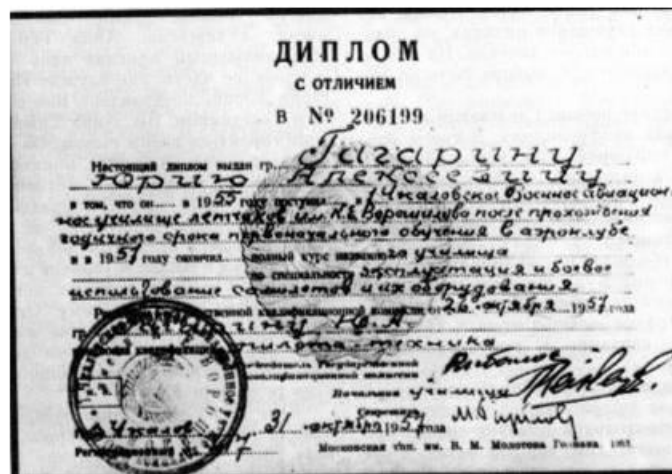 ДИПЛОМ
С ОТЛИЧИЕМ
В № 206199
Настоящий диплом выдан гр. Гагарину
Юрию Алексеевичу
в том, что он в 1955 году поступил в 1 Чкаловское военное авиацион
ное училище летчиков им. К.Е. Ворошилова после прохождения
годичного срока первоначального обучения в аэроклубе
и в 1957 году окончил полный курс названного училища
по специальности эксплуатация и боевое
использование самолетов и их оборудования
квалификационной комиссии от октября 1957 года
гр. Гагарину Ю.А.
квалификация пилота-техника
Председатель Государственной
квалификационной комиссии
Начальник училища
Секретарь
г. Чкалов 31 октября 1957 года
Регистрационный
Московская тип. им. В. М. Молотова Гознака